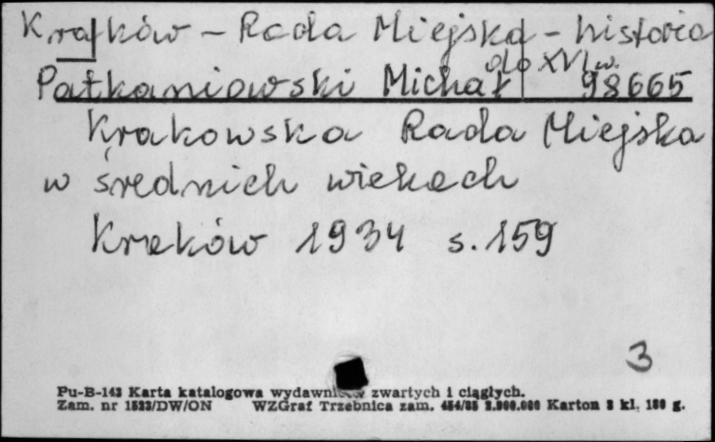 Kraków - Rada Miejska - historia
do XVI w.
Patkaniowski Michał 98665
Krakowska Rada Miejska
w średnich wiekach
Kraków 1934 s. 159
3
Pu-B-143 Karta katalogowa wydawnictw zwartych i ciągłych.
Zam. nr 1523/DW/ON WZGraf Trzebnica zam. 454/85 2.000.000 Karton 3 kl. 180 g.